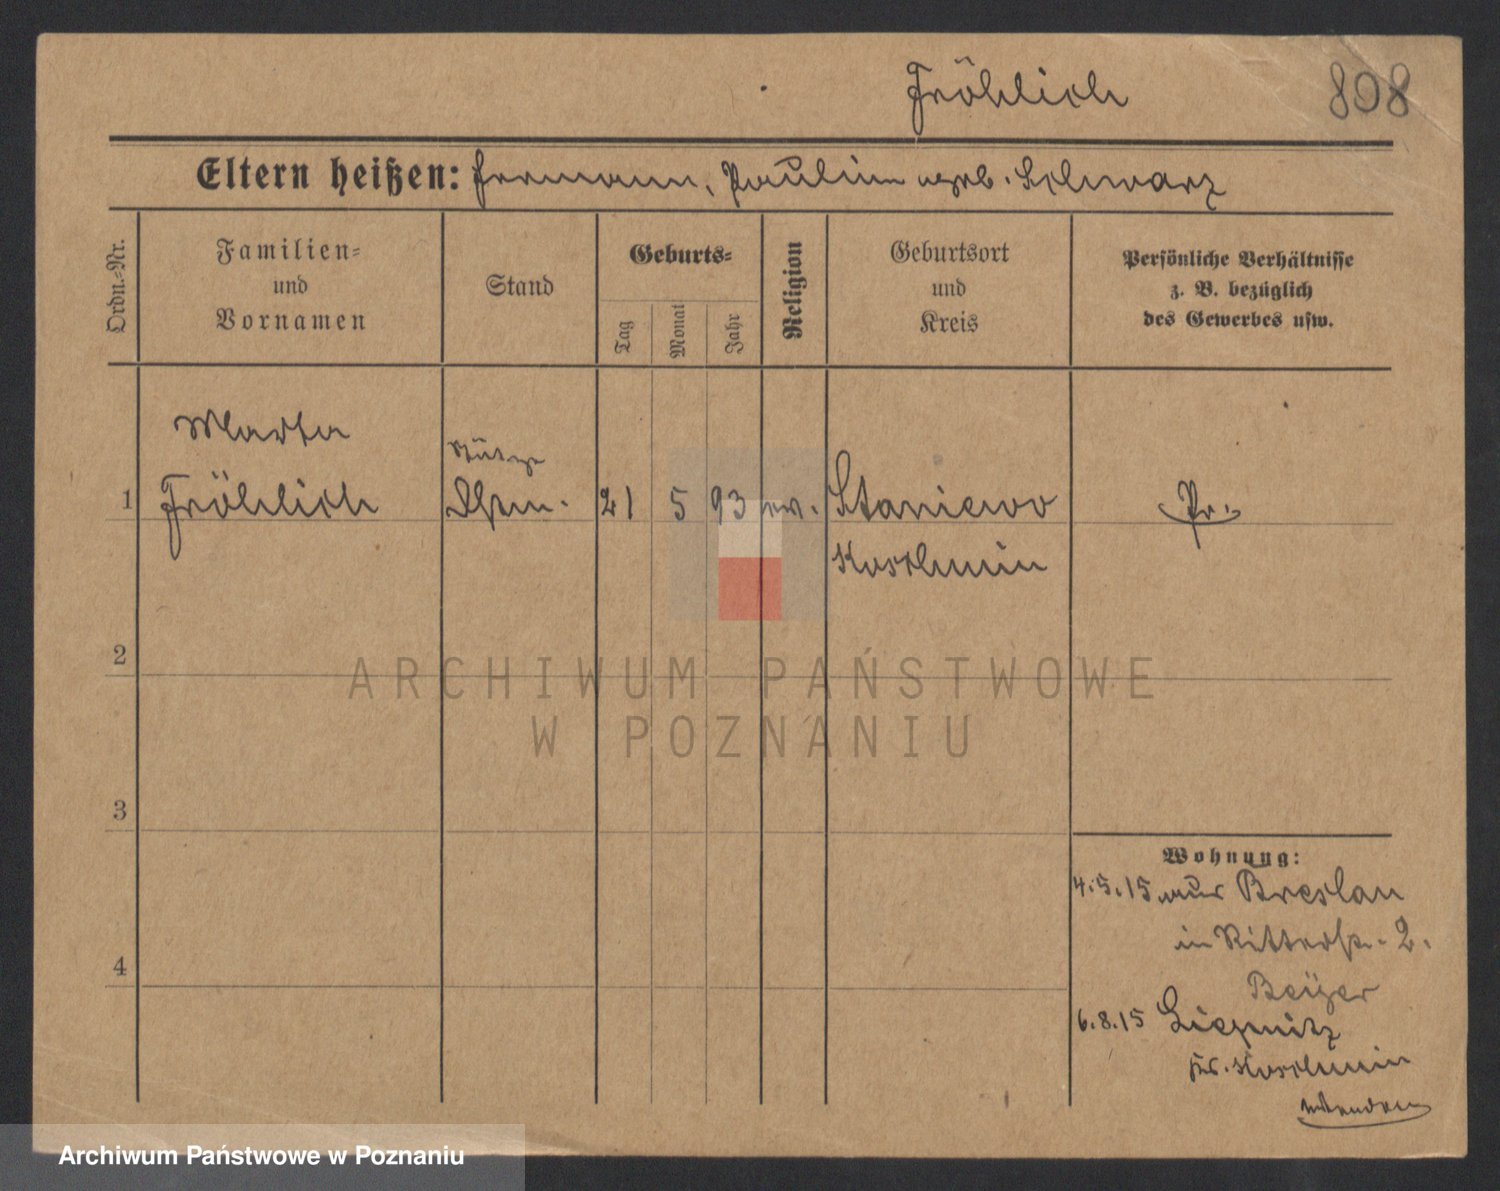 Fröhlich
808
Eltern heißen: Hermann, Pauline geb. Schwarz
Ordn.-Nr.
Familien-
und
Vornamen
Stand
Geburts-
Tag
Monat
Jahr
Religion
Geburtsort
und
Kreis
Persönliche Verhältnisse
z. B. bezüglich
des Gewerbes usw.
Martha
Fröhlich
Stütze
1
21
5
93
ev.
Staniewo
Koschmin
Pr.
2
3
4
Wohnung:
4.5.15 aus Breslau
in Ritterstr. 2.
Beyer
6.8.15 Liegnitz
Koschmin
wenden
ARCHIWUM PAŃSTWOWE
W POZNANIU
Archiwum Państwowe w Poznaniu